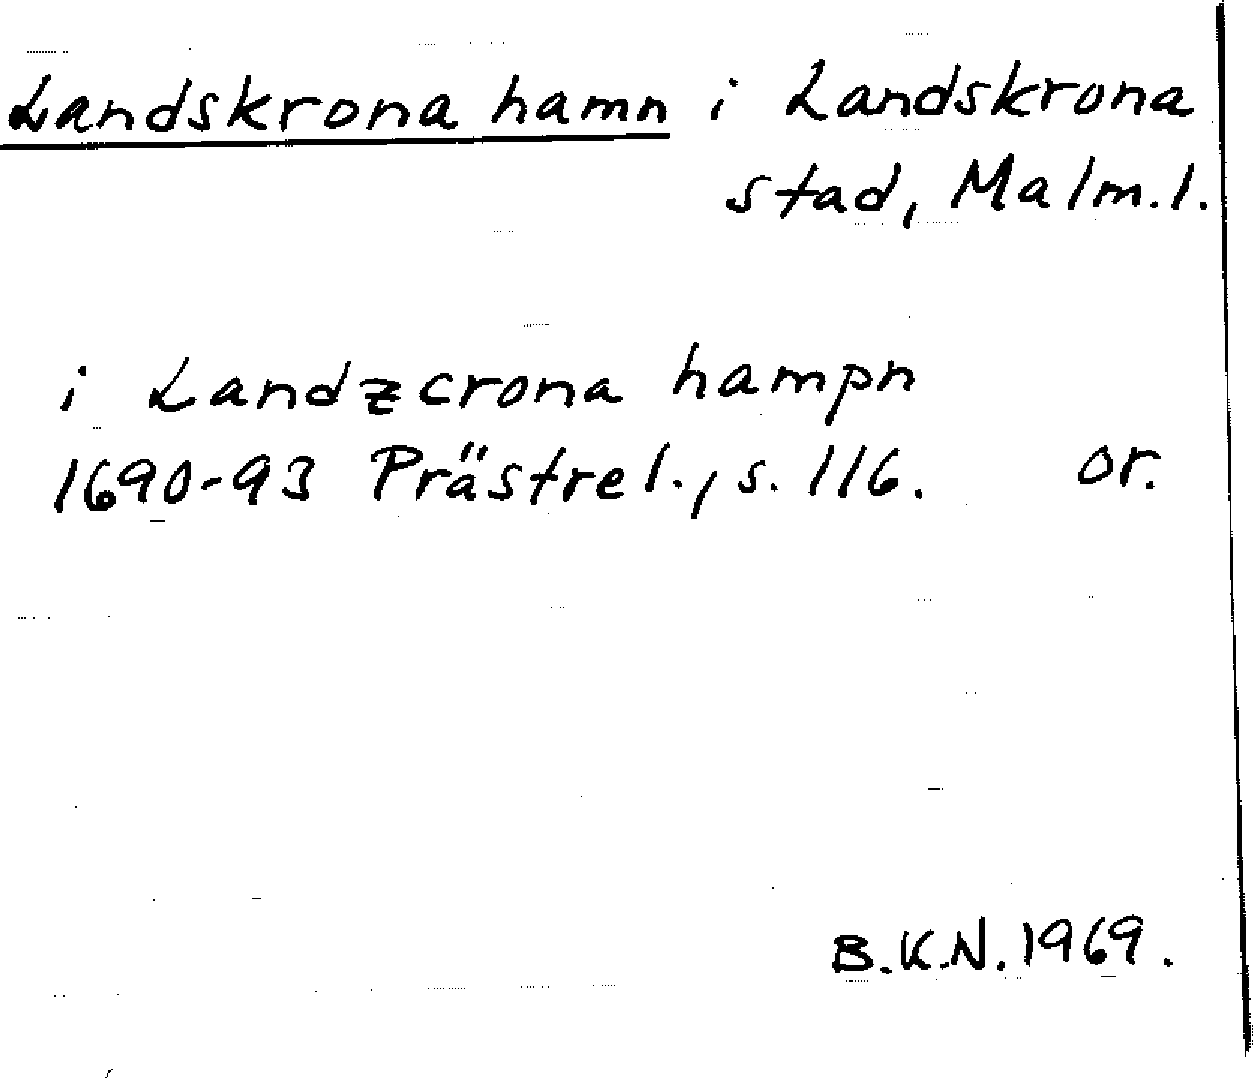 Landskrona hamn i Landskrona
stad, Malm.l.
i Landzcrona hampn
1690-93 Prästrel., s. 116. or.
B.K.N. 1969.